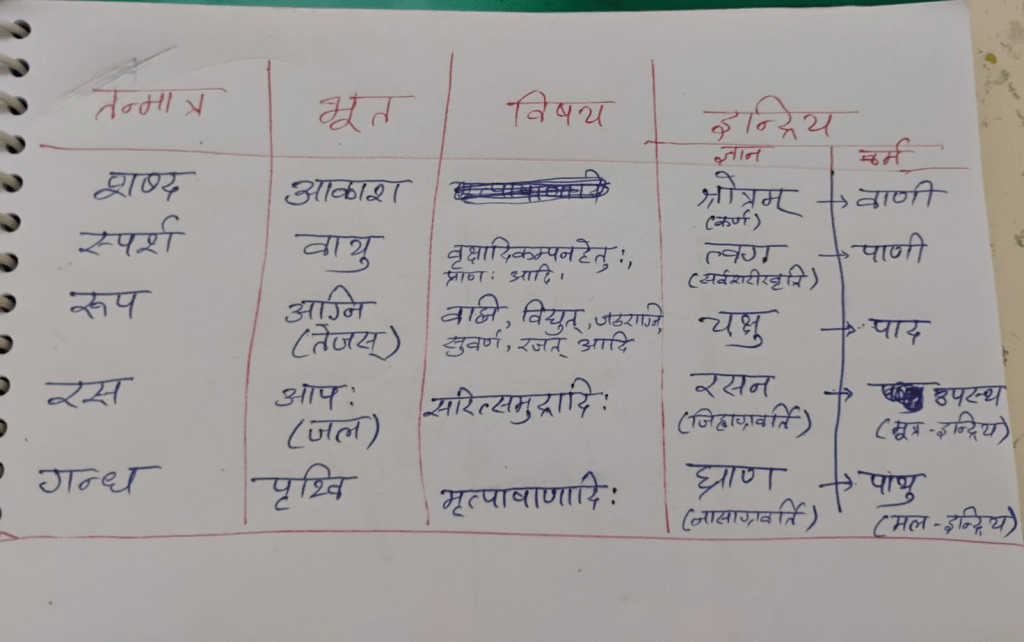 तन्मात्र भूत विषय इन्द्रिय
ज्ञान कर्म
शब्द आकाश श्रोत्रम् → वाणी
(कर्ण)
स्पर्श वायु वृक्षादिकम्पनहेतुः, त्वग → पाणी
प्राणः आदि। (सर्वशरीरवृत्ति)
रूप अग्नि वाह्नी, विद्युत्, जठराग्नि, चक्षु → पाद
(तेजस्) सुवर्ण, रजत् आदि
रस आपः सरित्समुद्रादिः रसन → उपस्थ
(जल) (जिह्वाग्रवर्ति) (मूत्र-इन्द्रिय)
गन्ध पृथ्वि मृत्पाषाणादिः घ्राण → पायु
(नासाग्रवर्ति) (मल-इन्द्रिय)